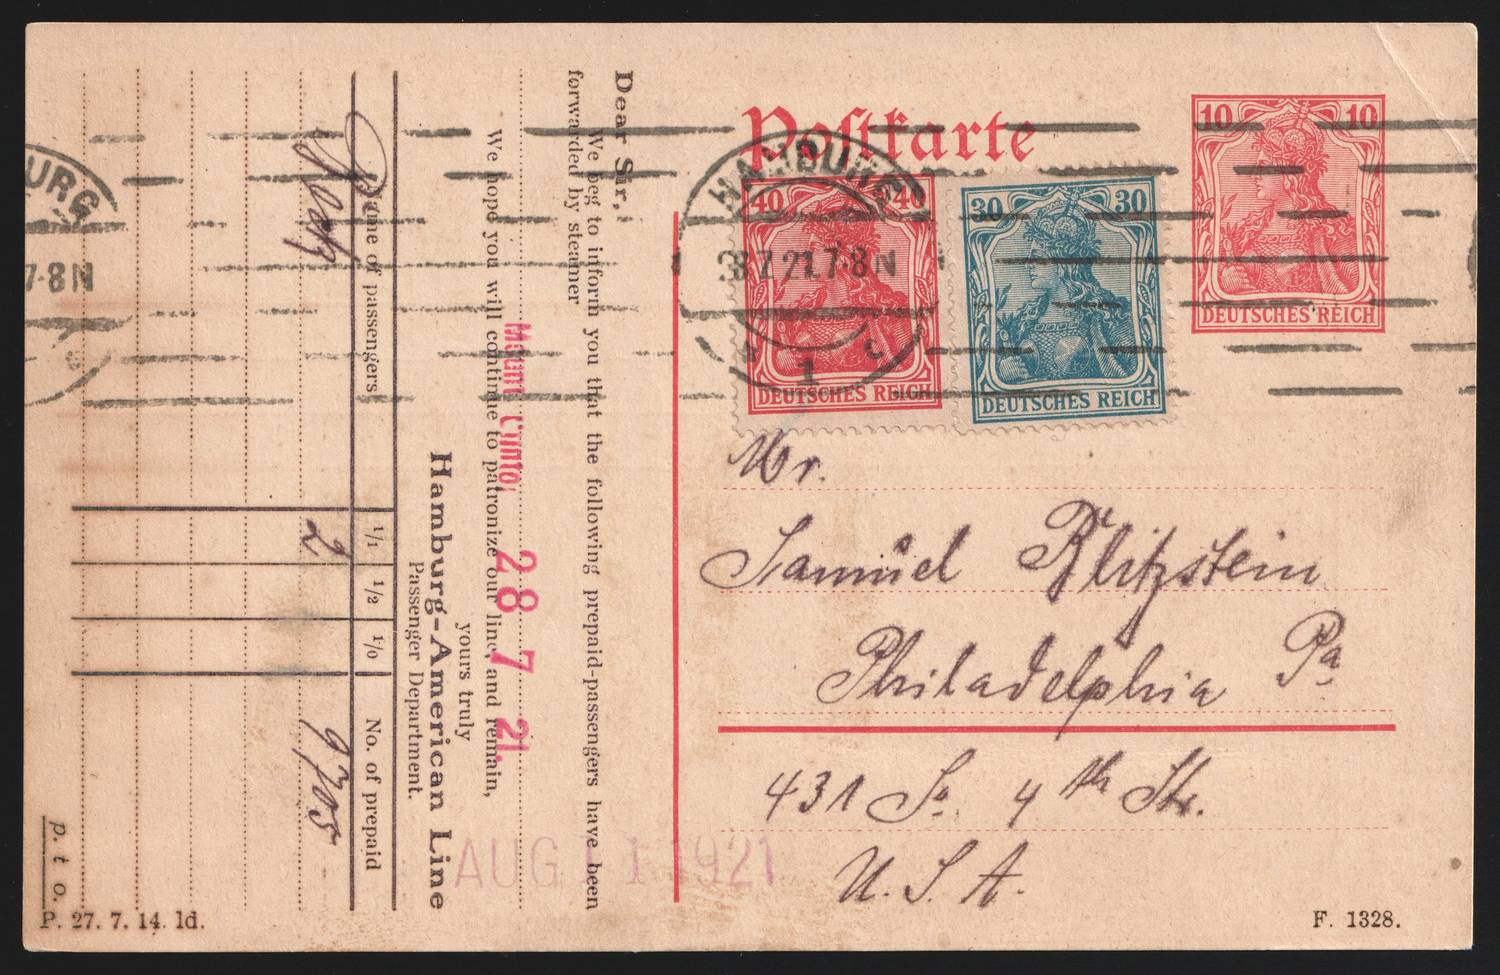 Postkarte
10 10
DEUTSCHES REICH
40 40
DEUTSCHES REICH
30 30
DEUTSCHES REICH
HAMBURG
28.7.21.7-8N
1 c
URG
7-8N
Mr.
Samuel Blitzstein
Philadelphia Pa
431 So. 4th Str.
U. S. A.
F. 1328.
Dear Sir,
We beg to inform you that the following prepaid-passengers have been
forwarded by steamer
Mount Clinton 28 7 21.
We hope you will continue to patronize our line, and remain,
yours truly
Hamburg-American Line
Passenger Department.
Name of passengers 1/1 1/2 1/0 No. of prepaid
2 9705
AUG 11 1921
p. t. o.
P. 27. 7. 14. ld.